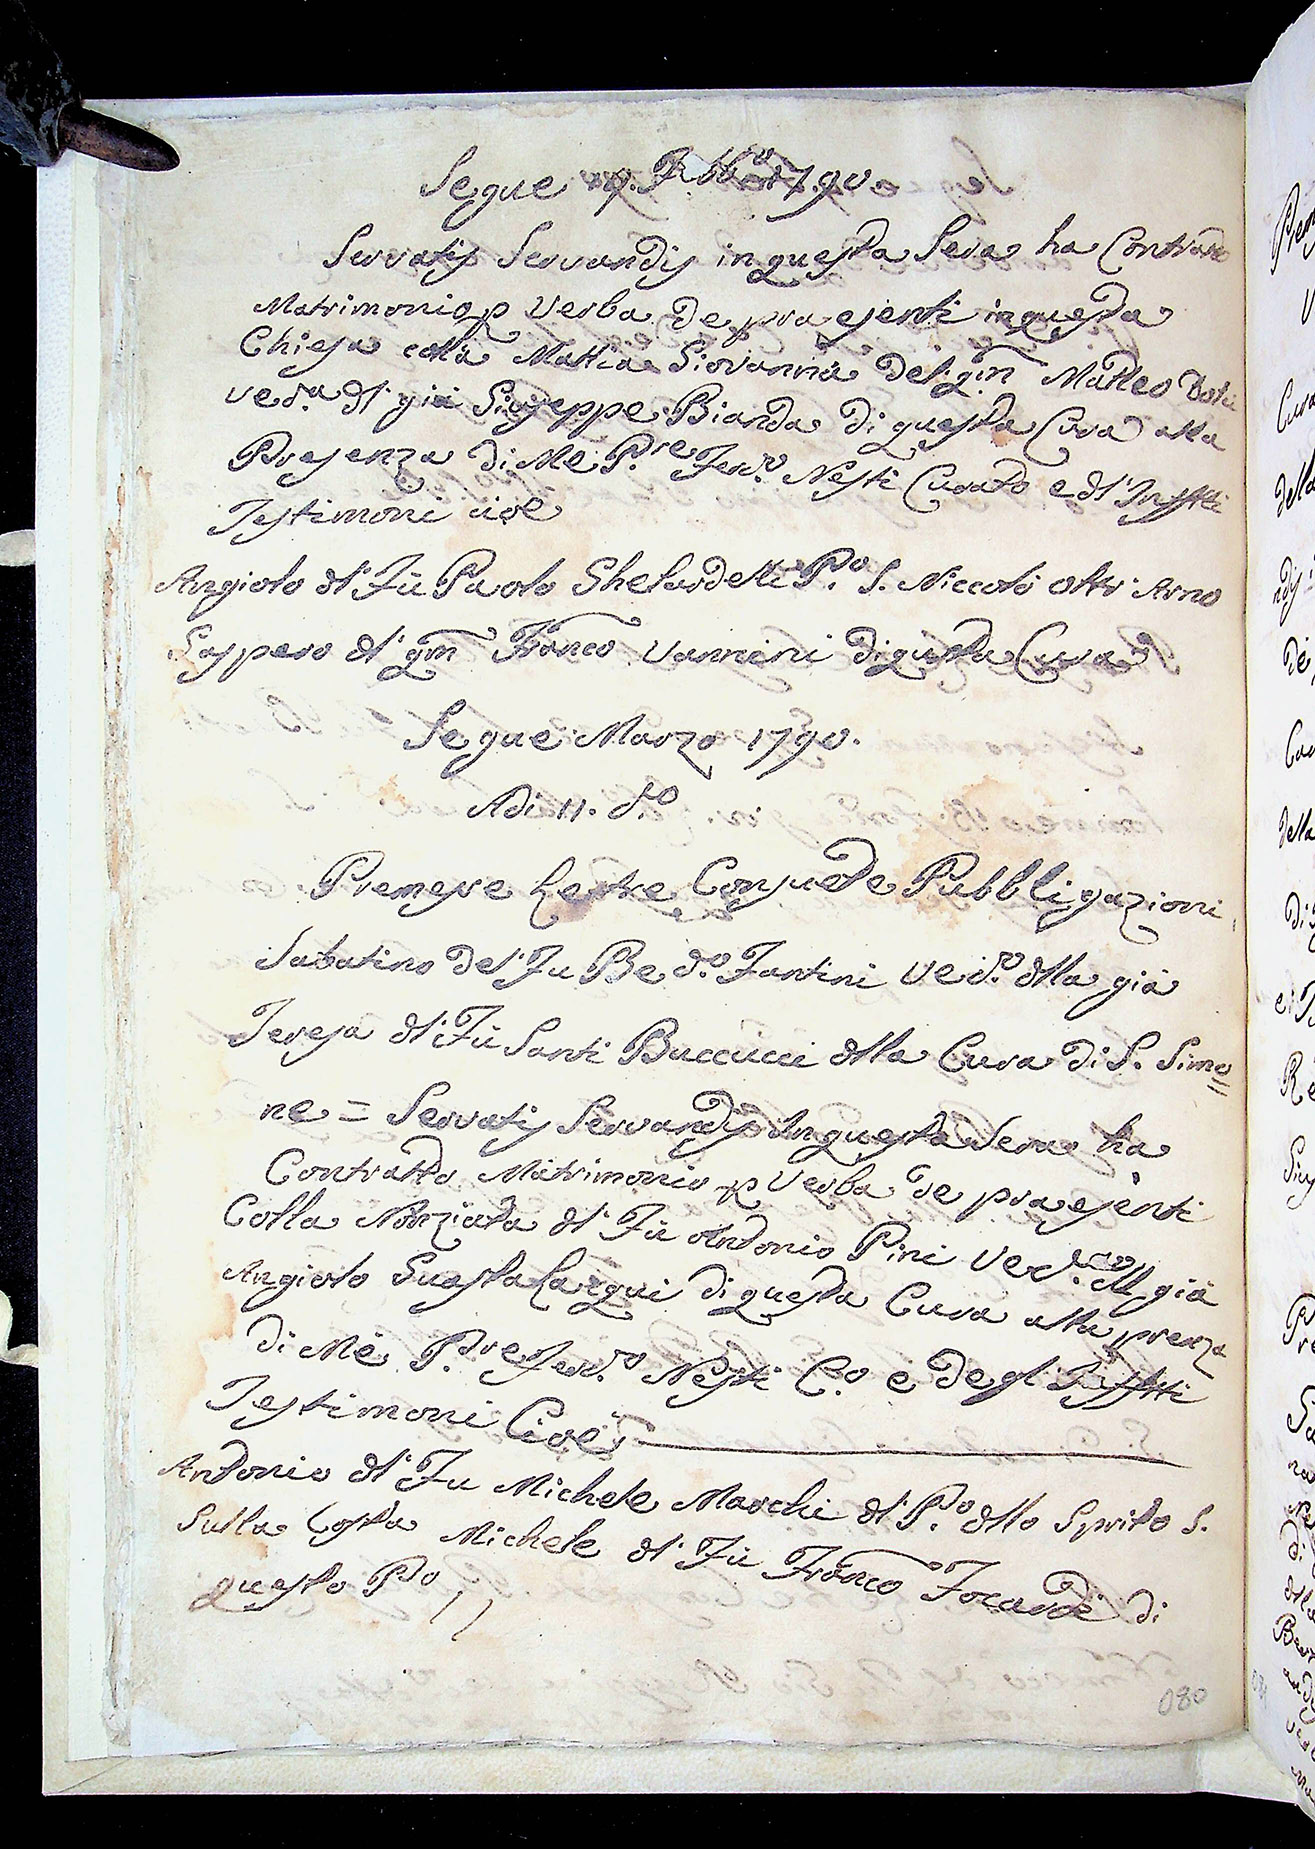 Segue 1790.
Servatis Servandis in questa Sera ha Contratto
Matrimonio p Verba de praesenti in questa
Chiesa colla Maria Giovanna del qm Matteo
ved.a dl già Giuseppe Bianda di questa Cura alla
Presenza di Me P.re Ferd.o Nesti Curato e dl' Infftti
Testimoni cioe
Angiolo dl' Fù Paolo Ghelardelli P.o S. Niccolò oltr' Arno
Gaspero dl' qm Franco Vannini di questa Cura
Segue Marzo 1790.
Adi 11. d.o
Premesse le tre Consuete Pubbligazioni
Sabatino del' Fu Be d.o Fantini Ved.o dlla già
Teresa dl' Fù Santi Buccucci dlla Cura di S. Simo=
ne = Servatis Servandis In questa Sera ha
Contratto Matrimonio p Verba de praesenti
Colla Nunziata dl' Fù Antonio Pini Ved.a dl già
Angiolo Guastalargui di questa Cura alla prenza
di Me P.re Ferd.o Nesti C.o e degl' Infftti
Testimoni Cioè
Antonio dl' Fu Michele Marchi dl' P.o dllo Spirito S.
Sulla Costa Michele dl' Fù Franco Focardi di
questo P.o //
080